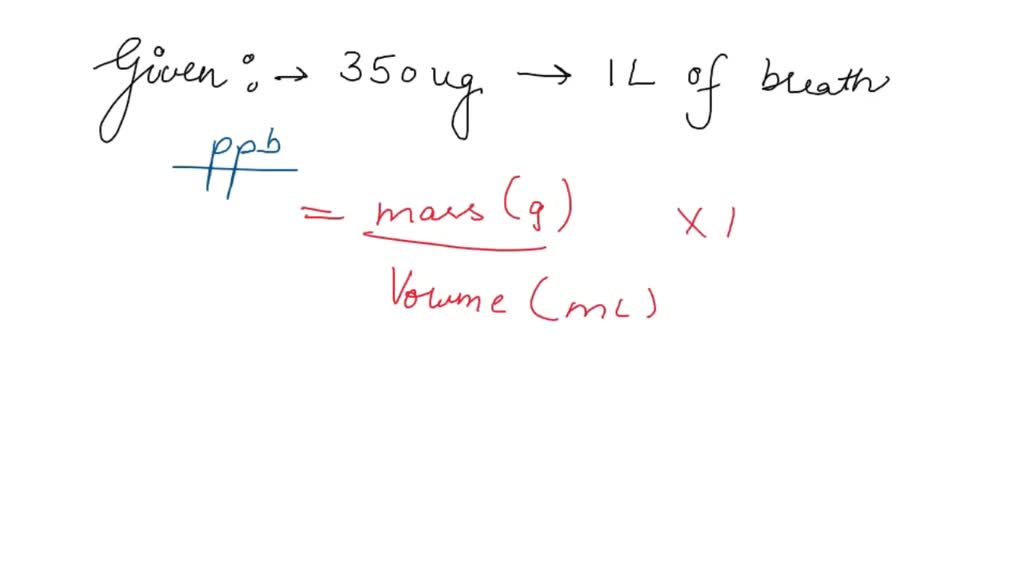 Given : → 350 ug → 1L of breath
ppb
= mass (g) X 1
Volume (mL)